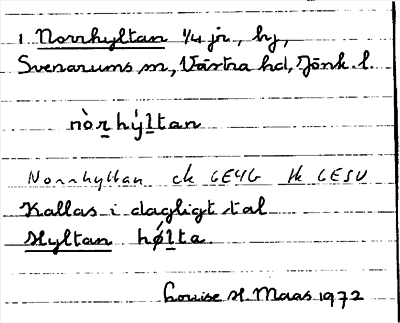 1 Norrhyltan 1/4 jr, by,
Svenarums sn, Västra hd, Jönk. l.
nòrhýltan
Norrhyltan ek 6E4G tk 6E5U
Kallas i dagligt tal
Hyltan hǿlta
Louise H. Maas 1972